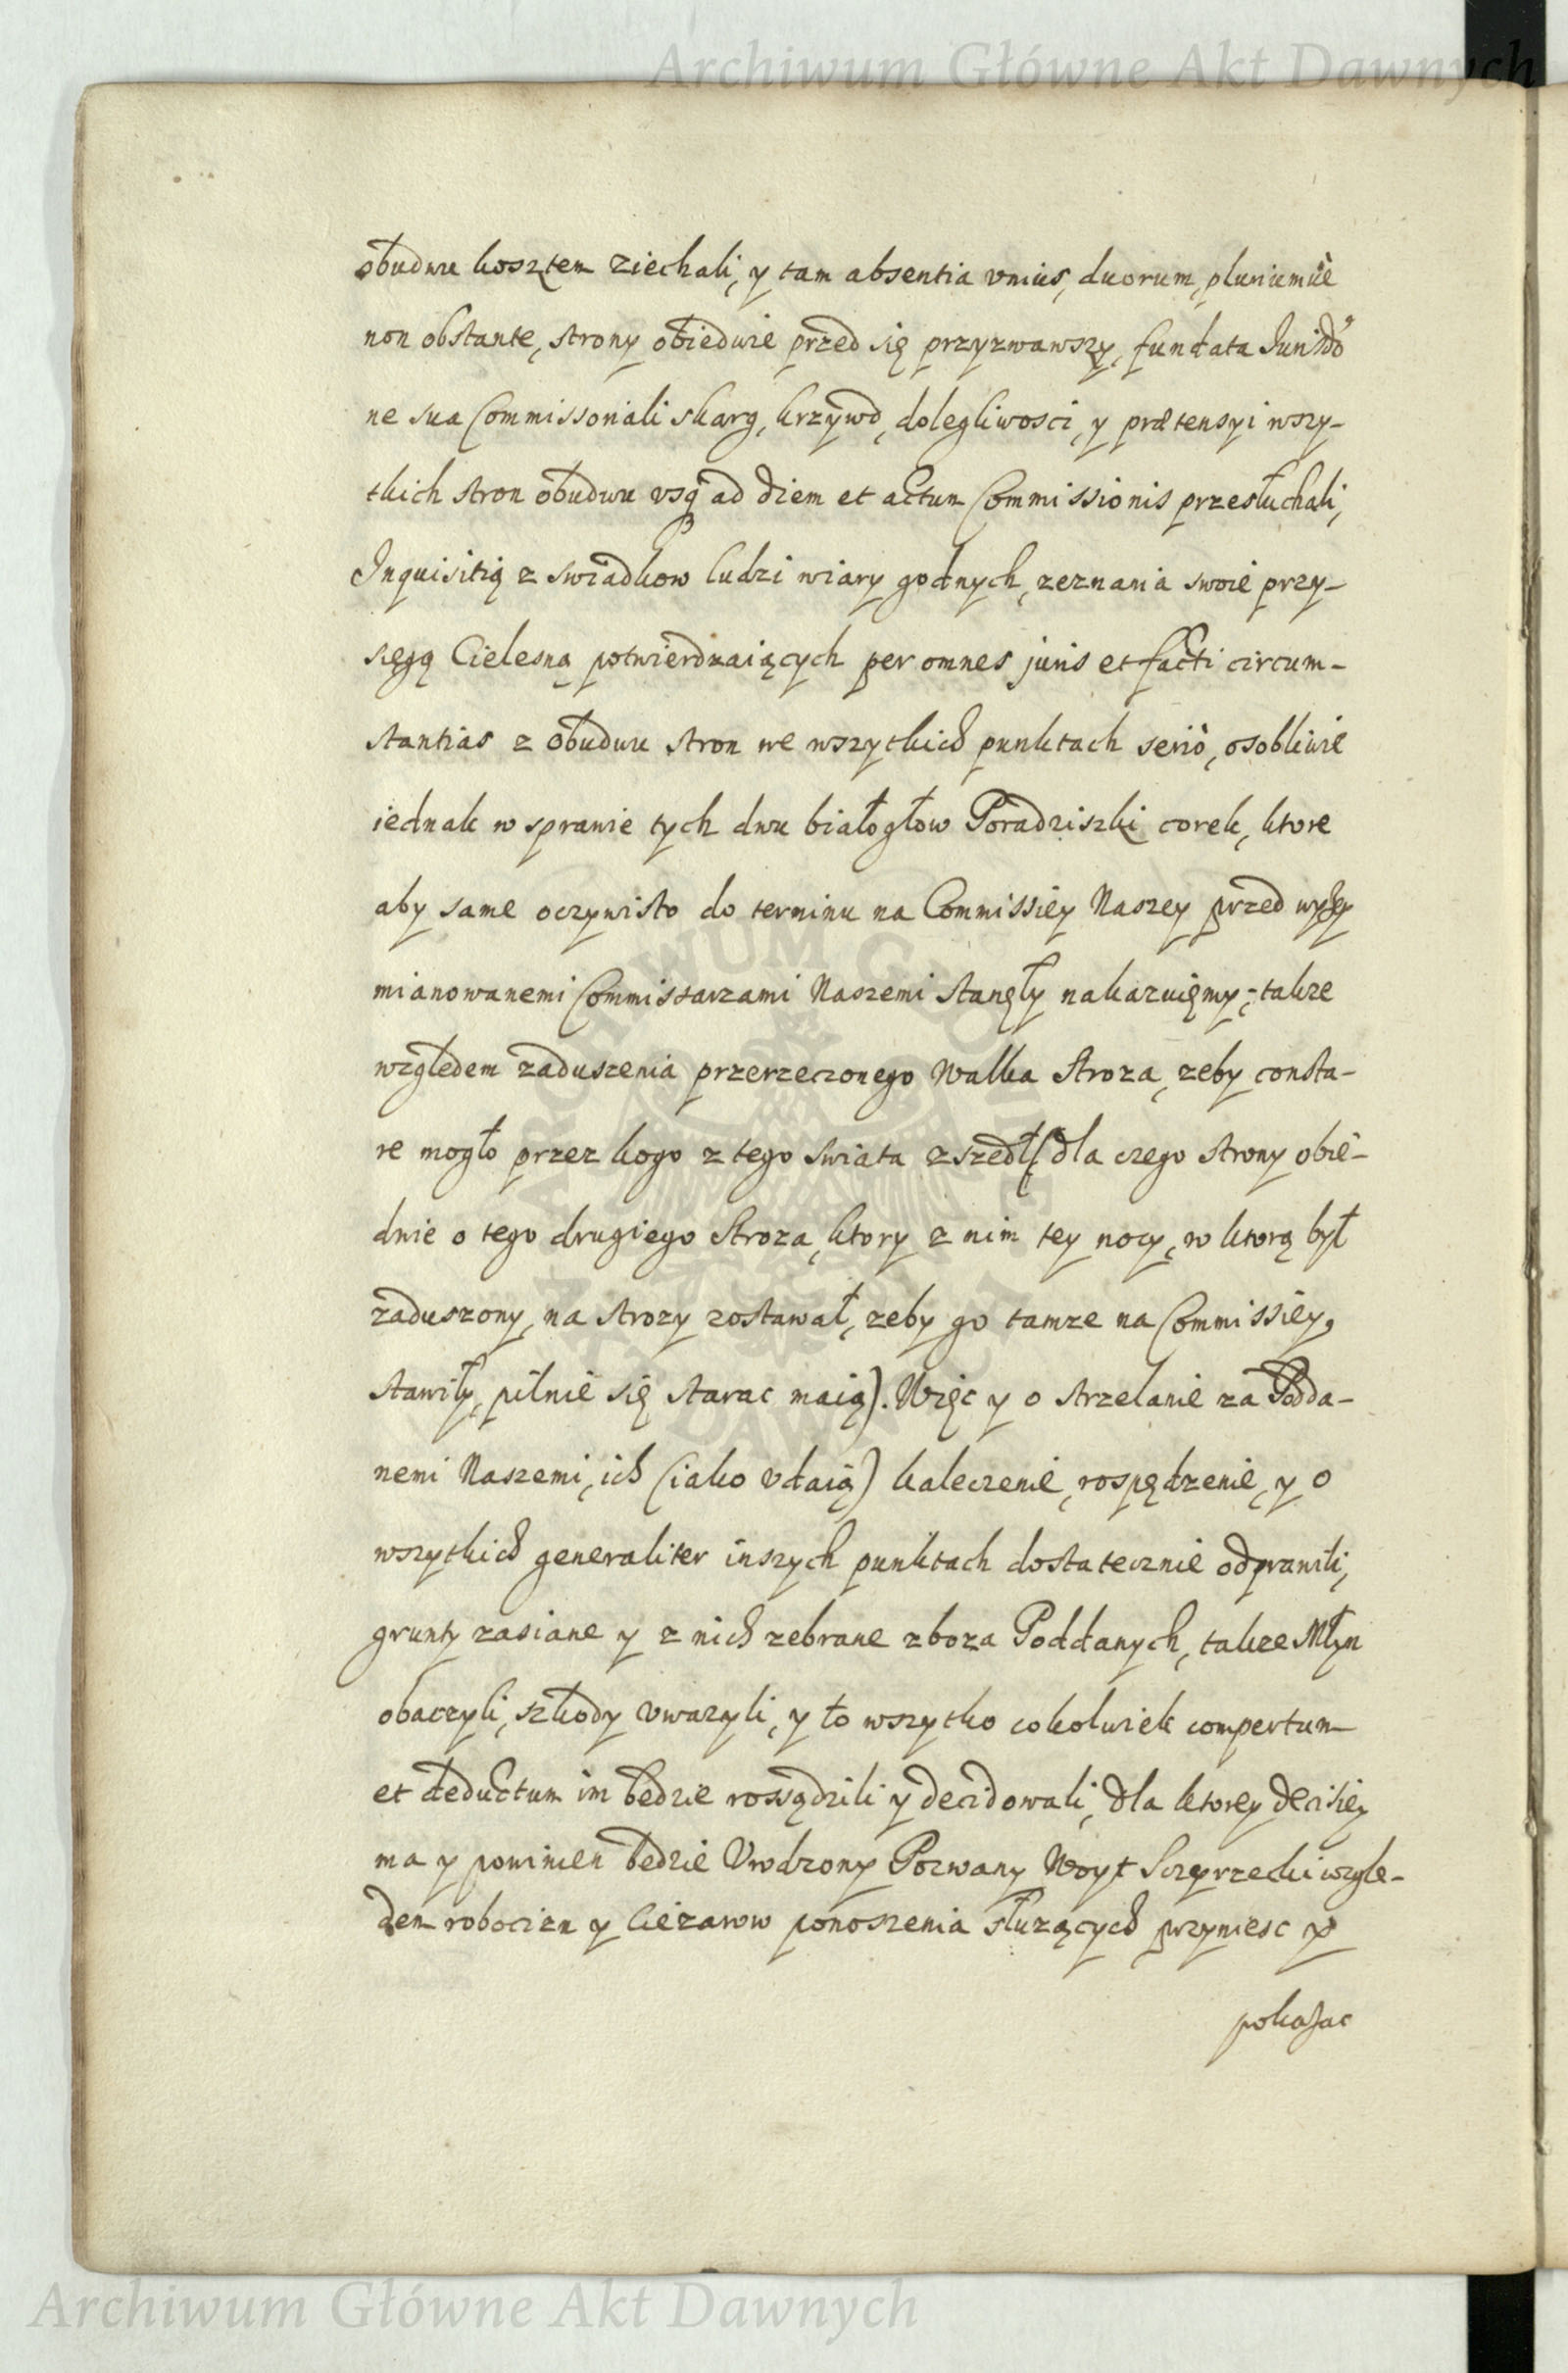 Archiwum Główne Akt Dawnych
obudwu kosztem ziechali, y tam absentia vnius, duorum, pluriumuè
non obstante, strony obiedwie przed się przyzwawszy, fundata Jurisdõ
ne sua Commissoriali skarg, krzywd, dolegliwosci, y prætensyi wszy-
tkich stron obudwu vsq ad diem et actum Commissionis przesłuchali,
Inquisitią z swiadkow ludzi wiary godnych, zeznania swoie przy-
sięgą Cielesną potwierdzaiących per omnes juris et facti circum-
stantias z obudwu stron we wszytkich punktach seriò, osobliwie
iednak w sprawie tych dwu białogłow Poradziszki corek, ktore
aby same oczywisto do terminu na Commissiey Naszey przed wyżey
mianowanemi Commissarzami Naszemi stanęły nakazuięmy; takze
względem zaduszenia przerzeczonego Walka Stroza, zeby consta-
re mogło przez kogo z tego swiata zszedł (dla czego strony obie-
dwie o tego drugiego Stroza, ktory z nim tey nocy, w ktorą był
zaduszony, na strozy zostawał, zeby go tamze na Commissiey,
stawiły, pilnie się starac maią). Więc y o strzelanie za Podda-
nemi Naszemi, ich (iako vdaią) kaleczenie, rospędzenie, y o
wszytkich generaliter inszych punktach dostatecznie odprawili,
grunty zasiane y z nich zebrane zboza Poddanych, takze Młyn
obaczyli, szkody vwazyli, y to wszytko cokolwiek compertum
et deductum im będzie rossądzili y decidowali, dla ktorey decisiey
ma y powinien będzie Vrodzony Pozwany Woyt Sczyrzecki wzglę-
dem robocizn y ciężarow ponoszenia słuzących przyniesc y
pokazac
Archiwum Główne Akt Dawnych